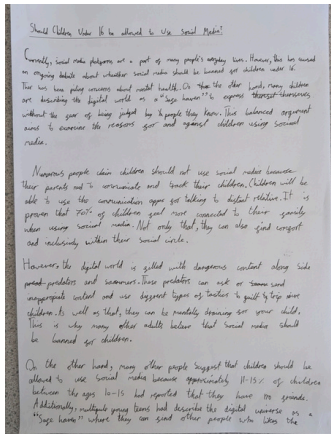 Should Children Under 16 be allowed to Use Social Media?
Currently, social media platforms are a part of many people's everyday lives. However, this has caused
an ongoing debate about whether social media should be banned for children under 16.
This has been raising concerns about mental health. On the other hand, many children
are describing the digital world as a "safe haven" to express themselves,
without the fear of being judged by people they know. This balanced argument
aims to examine the reasons for and against children using social
media.
Numerous people claim children should use social media because
their parents to communicate and track their children. Children will be
able to use the communication apps for talking to distant relative. It is
proven that 70% of children feel more connected to their family
when using social media. Not only that, they can also find comfort
and inclusivity within their social circle.
However, the digital world is filled with dangerous content along side
predators and scammers. These predators can ask or send
inappropriate content and use different types of tactics to guilt trip
children. As well as that, they can be mentally draining for your child.
This is why many other adults believe that social media should
be banned for children.
On the other hand, many other people suggest that children should be
allowed to use social media because approximately 11-15% of children
between the ages 10-15 had reported that they have no friends.
Additionally, multiple young teens had describe the digital universe as a
"safe haven" where they can find other people who likes the